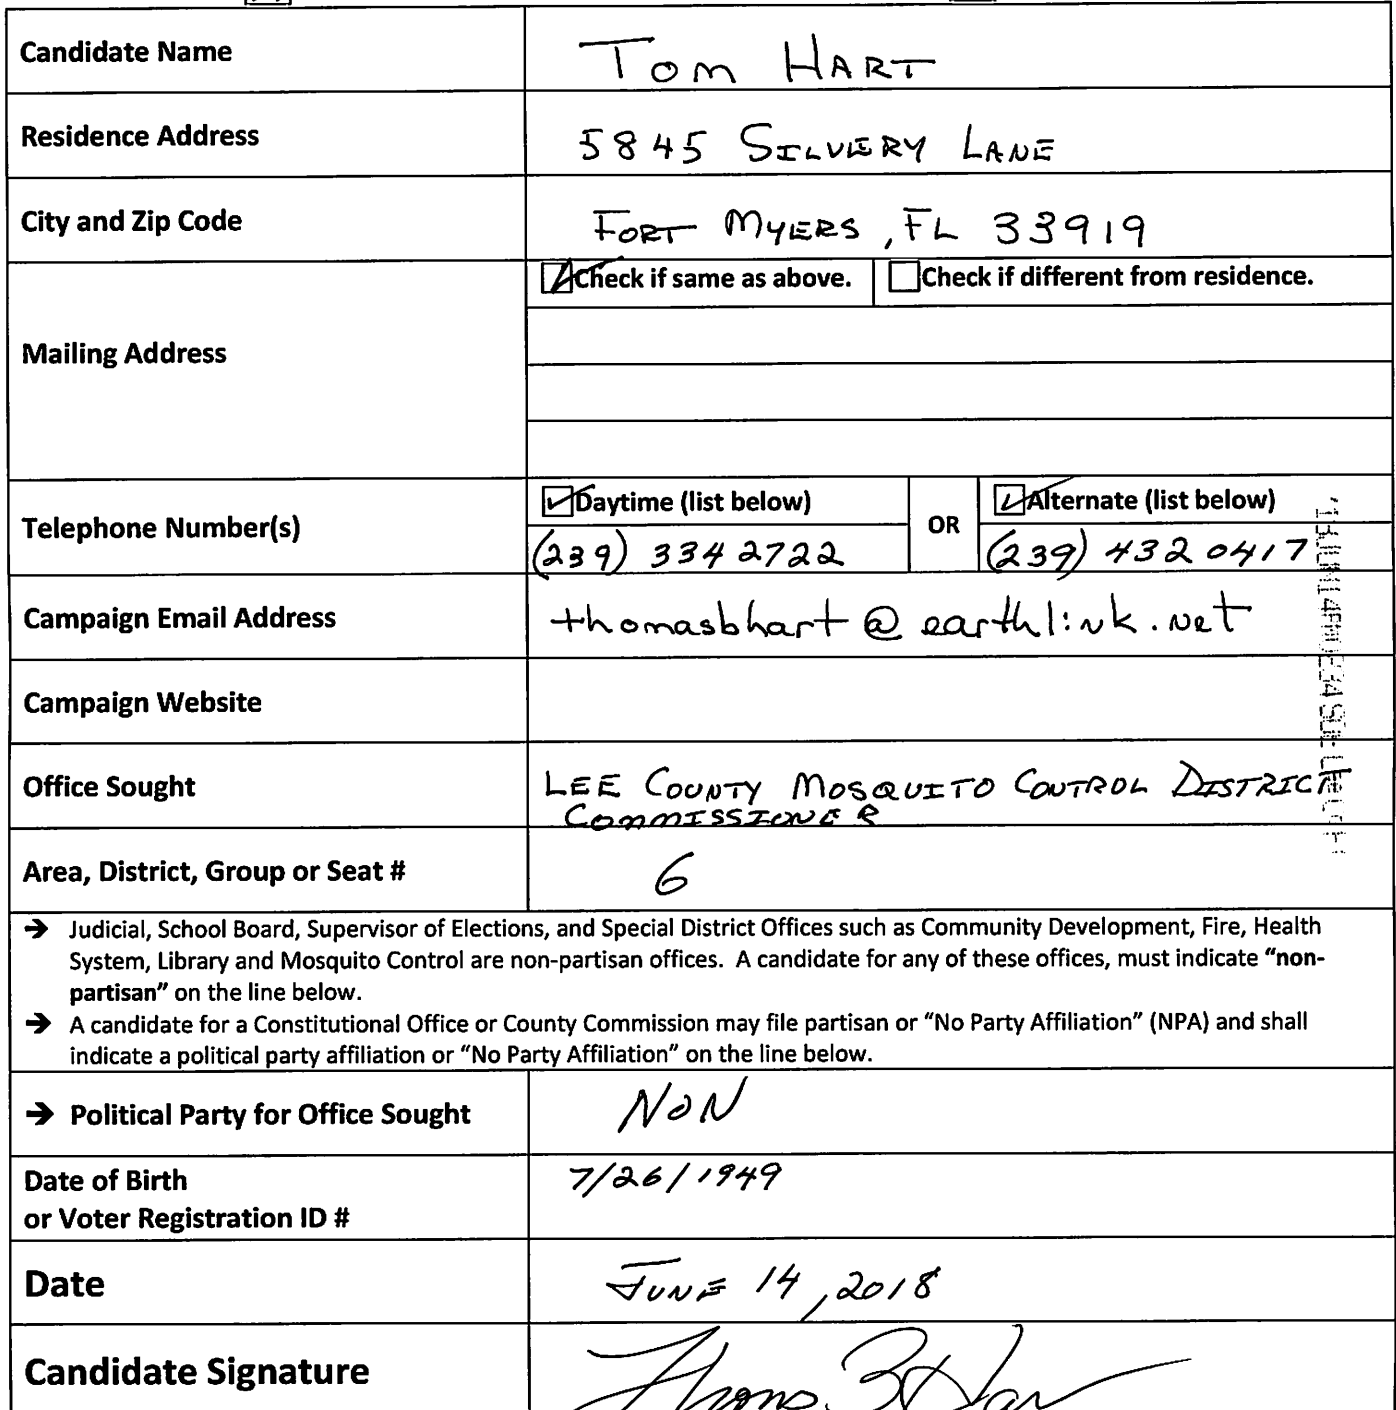 Candidate Name
Tom HART
Residence Address
5845 SILVERY LANE
City and Zip Code
FORT MYERS, FL 33919
Mailing Address
Check if same as above.
Check if different from residence.
Telephone Number(s)
Daytime (list below)
OR
Alternate (list below)
(239) 334 2722
(239) 432 0417
Campaign Email Address
thomasbhart@earthlink.net
Campaign Website
Office Sought
LEE COUNTY MOSQUITO CONTROL DISTRICT
COMMISSIONER
Area, District, Group or Seat #
6
→ Judicial, School Board, Supervisor of Elections, and Special District Offices such as Community Development, Fire, Health
System, Library and Mosquito Control are non-partisan offices. A candidate for any of these offices, must indicate “non-
partisan” on the line below.
→ A candidate for a Constitutional Office or County Commission may file partisan or “No Party Affiliation” (NPA) and shall
indicate a political party affiliation or “No Party Affiliation” on the line below.
→ Political Party for Office Sought
NON
Date of Birth
or Voter Registration ID #
7/26/1949
Date
JUNE 14, 2018
Candidate Signature